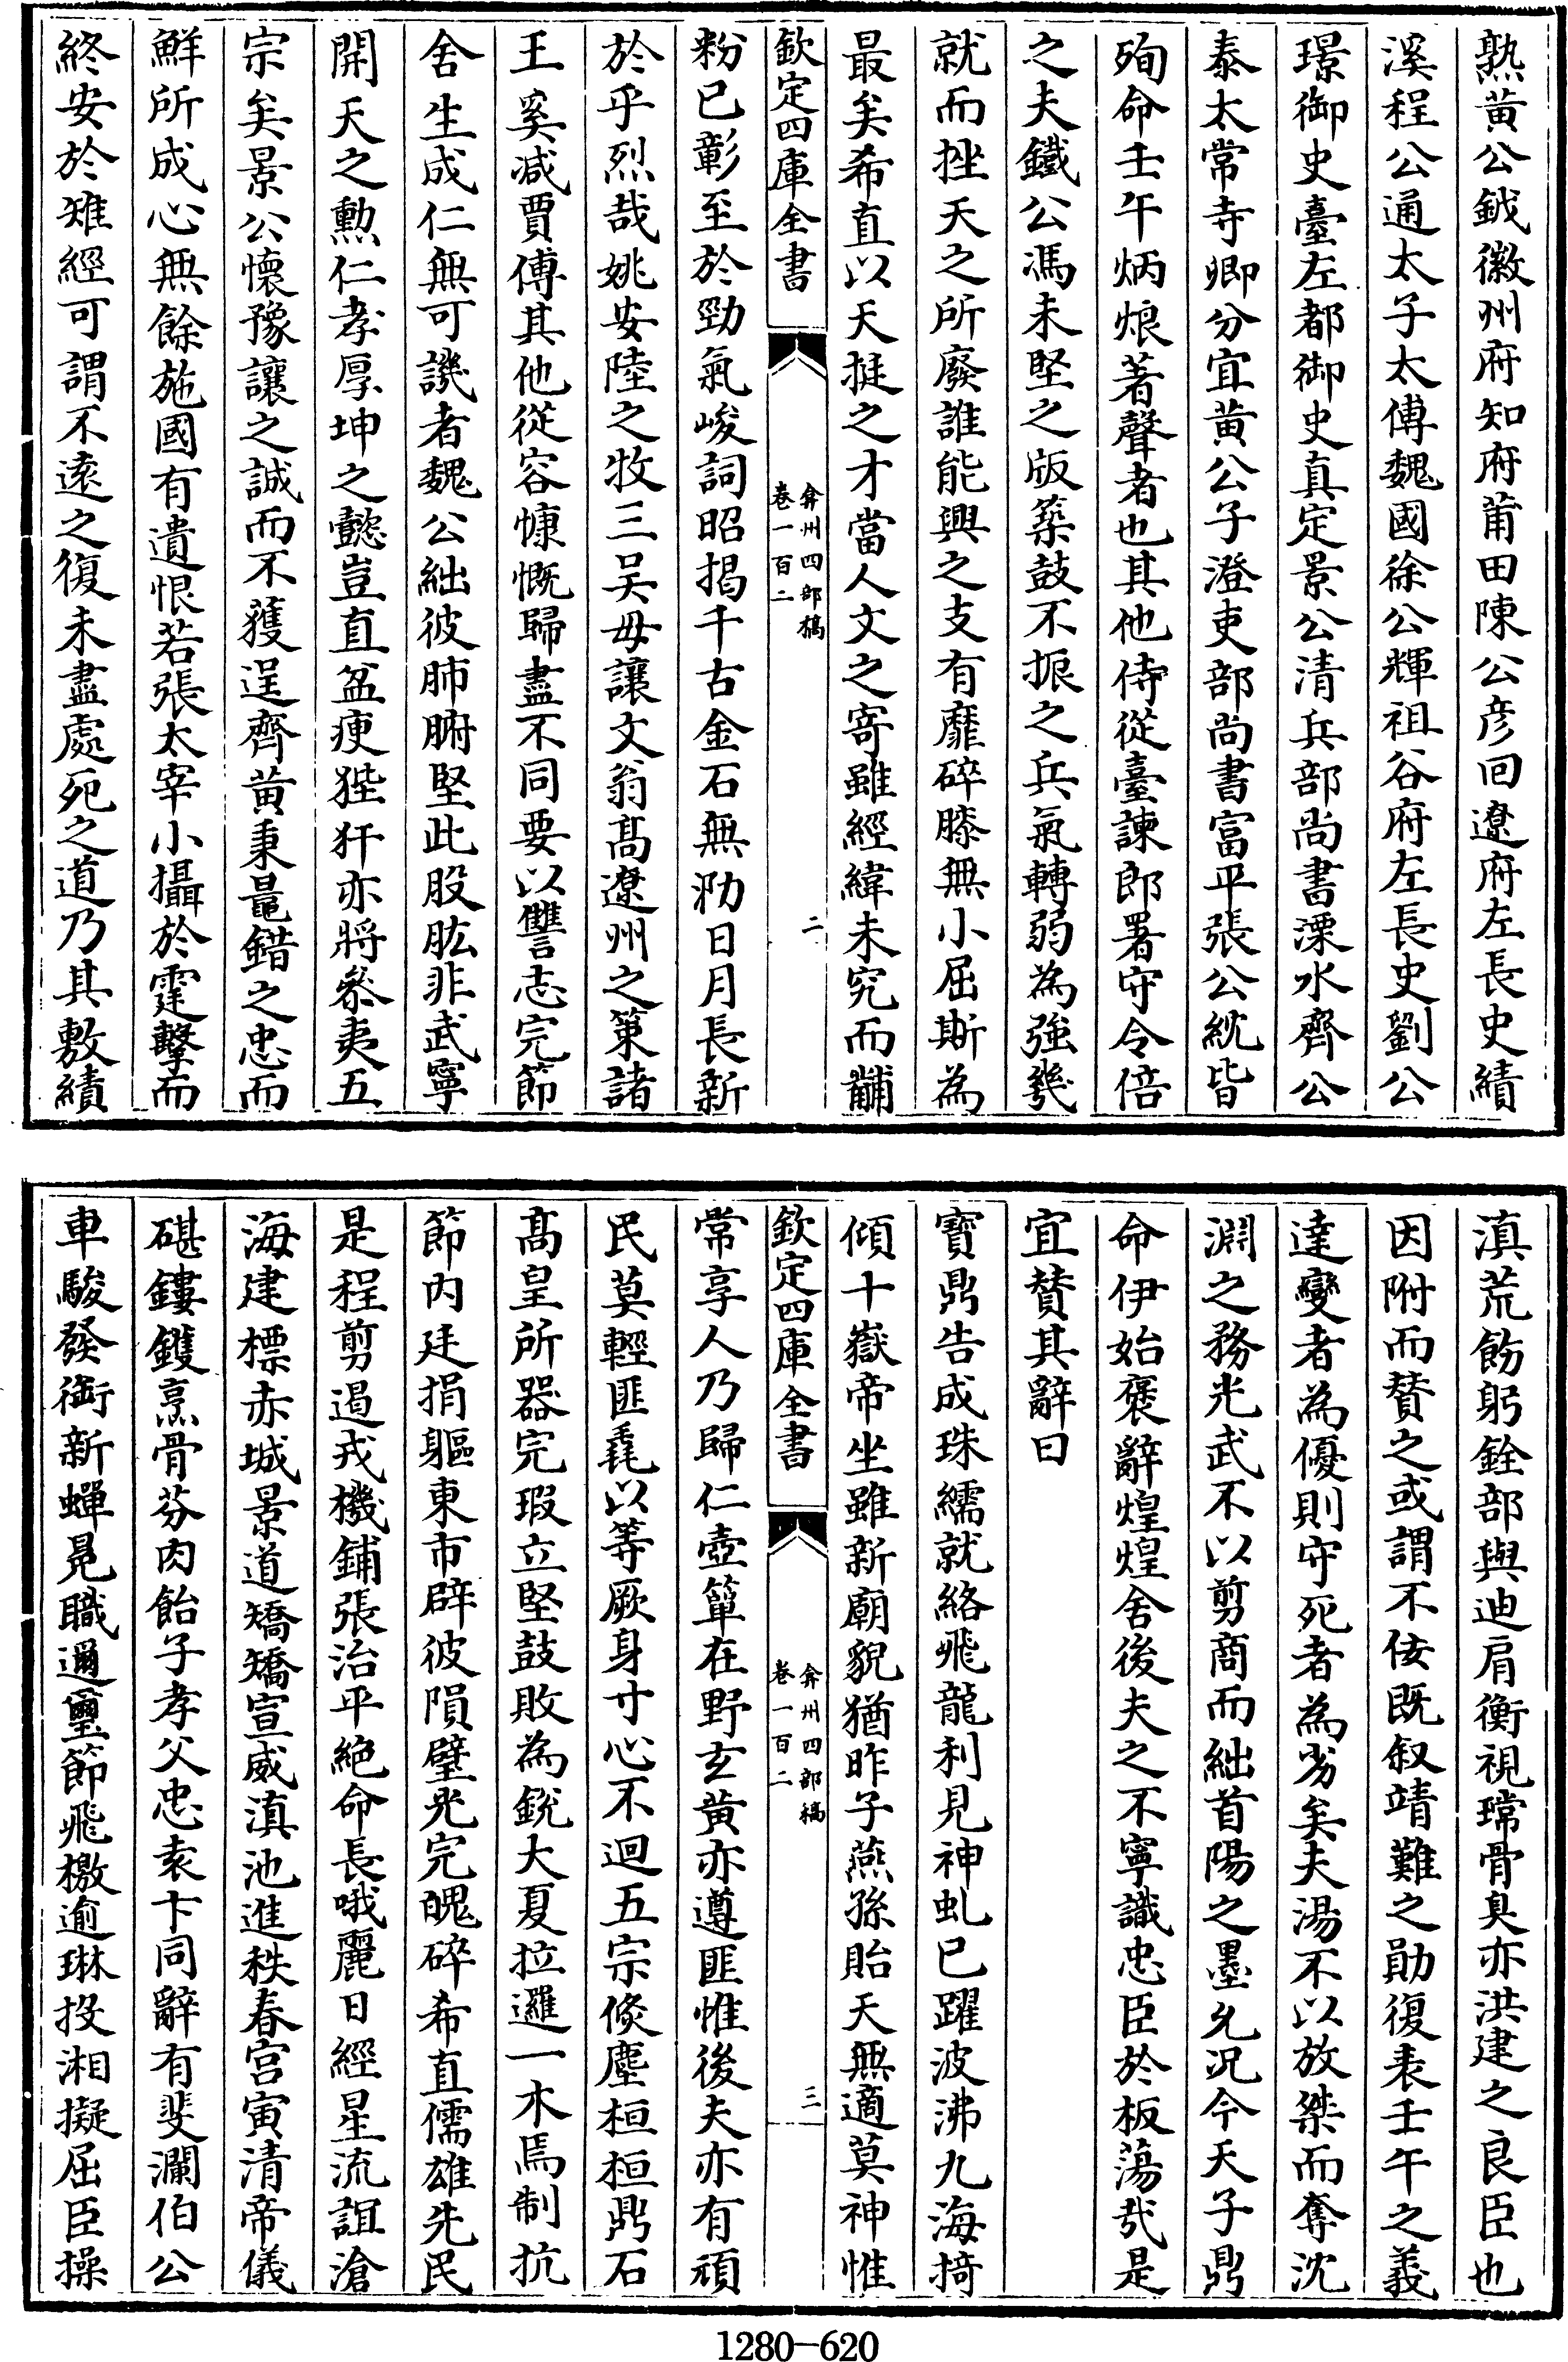 熟黄公鉞徽州府知府莆田陳公彦回遼府左長史績
溪程公通太子太傅魏國徐公輝祖谷府左長史劉公
璟御史臺左都御史真定景公清兵部尚書溧水齊公
泰太常寺卿分宜黄公子澄吏部尚書富平張公紞皆
殉命壬午炳烺著聲者也其他侍從臺諫郎署守令倍
之夫鐵公馮未堅之版築鼓不振之兵氣轉弱為強幾
就而挫天之所廢誰能興之支有靡碎膝無小屈斯為
最矣希直以天挺之才當人文之寄雖經緯未究而黼
欽定四庫全書
弇州四部稿
卷一百二
二
粉已彰至於勁氣峻詞昭揭千古金石無泐日月長新
於乎烈哉姚安陸之牧三吴毋讓文翁高遼州之策諸
王奚减賈傅其他從容慷慨歸盡不同要以讐志完節
舍生成仁無可譏者魏公絀彼肺腑堅此股肱非武寧
開天之勲仁孝厚坤之懿豈直盆㾱狴犴亦將叅夷五
宗矣景公懷豫讓之誠而不獲逞齊黄秉鼂錯之忠而
鮮所成心無餘施國有遺恨若張太宰小攝於霆擊而
終安於雉經可謂不遠之復未盡處死之道乃其敷績
滇荒飭躬銓部與迪肩衡視瑺骨臭亦洪建之良臣也
因附而賛之或謂不佞既叙靖難之勛復表壬午之義
達變者為優則守死者為劣矣夫湯不以放桀而奪沈
淵之務光武不以剪商而絀首陽之墨允况今天子鼎
命伊始褒辭煌煌舍後夫之不寧識忠臣於板蕩哉是
宜賛其辭曰
寶鼎告成珠繻就絡飛龍利見神虬已躍波沸九海掎
傾十嶽帝坐雖新廟貌猶昨子燕孫貽天無適莫神惟
欽定四庫全書
弇州四部稿
卷一百二
三
常享人乃歸仁壺簞在野玄黄亦遵匪惟後夫亦有頑
民莫輕匪毳以等厥身寸心不迴五宗倐塵桓桓鼎石
高皇所器完瑕立堅鼓敗為銳大夏拉邐一木焉制抗
節内廷捐軀東市辟彼隕璧光完魄碎希直儒雄先民
是程剪遏戎機鋪張治平絶命長哦麗日經星流誼滄
海建標赤城景道矯矯宣威滇池進秩春宫寅清帝儀
碪鏤鑊烹骨芬肉飴子孝父忠袁卞同辭有斐瀾伯公
車駿發銜新蟬冕職邇璽節飛檄逾琳投湘擬屈臣操
1280-620